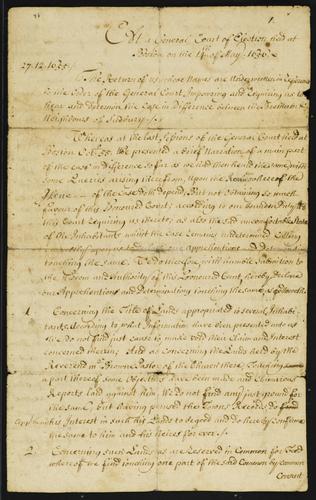 1.
At a General Court of Election held at
Boston on the 11th of May 1696.
27.12.1695.
The Return of us whose Names are Underwritten in
to the Order of the General Court, Impowring and Requiring us to
hear and Determin the Case in Difference between the Brethren &
Neighbours of Sudbury.
Whereas at the last Sessions of the General Court held at
Boston Octr 95. We presented a Brief Narration of a main part
of the case in difference so far as we had then heard the same, with
Some Queries arising therefrom, Upon the Resolves of the
of the Case doth depend, But not obtaining so much
favour of this Honoured Court; according to our bounden Duty &
this Court requiring us thereto, as also the sad uncomfortable State
of the Inhabitants whilst the Case remains undetermined Calling
our apprehensions and Determination
touching the same. We do therefore with humble Submission to
the Wisdom and Authority of this Honoured Court, hereby declare
our Apprehentions and Determination touching the same, as followeth
1. Concerning the Title of Lands appropriated to several Inhabi-
tants, According to what Information have been presented unto us
We do not find just cause to make void their Claim and Interest
concerned therein; And as Concerning the Lands held by the
Reverend Mr Brown Pastor of the Church there, touching
a part thereof some Objections have been made and Clamorous
Reports laid against him, We do not find any just ground for
the same, but having perused the Towns Records do find
his Interest in such his Lands to be good and do hereby confirm
the same to him and his heires for ever.
2. Concerning such Lands as are Reserved in Common for
whereof we find touching one part of the said Common by common
Consent